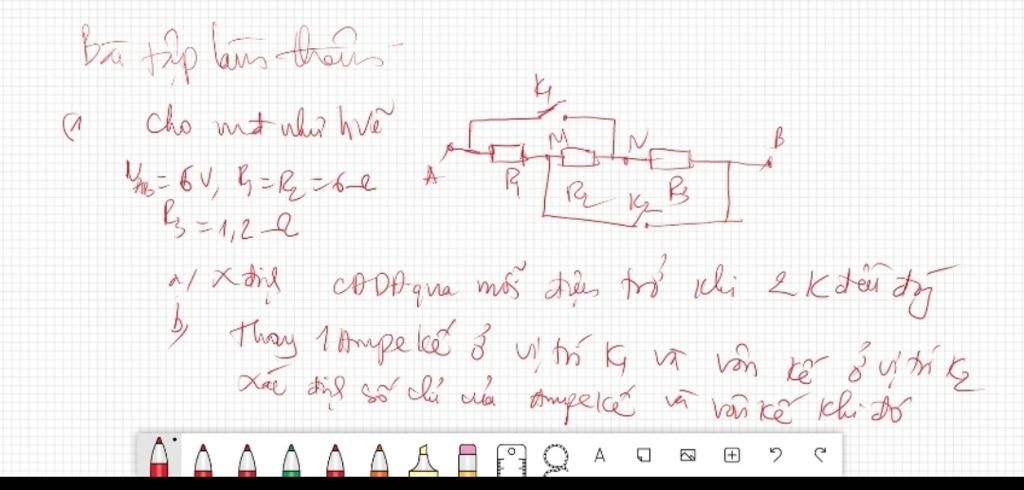 Bài tập làm thêm
(1 Cho mđ như hvẽ
K1
M N B
A R1 R2 K2 R3
UAB = 6V, R1 = R2 = 6Ω
R3 = 1,2 Ω
a/ X định CĐDĐ qua mỗi điện trở khi 2 K đều đóng
b, Thay 1 Ampe kế ở vị trí K1 và vôn kế ở vị trí K2
Xác định số chỉ của Ampe kế và vôn kế khi đó
A